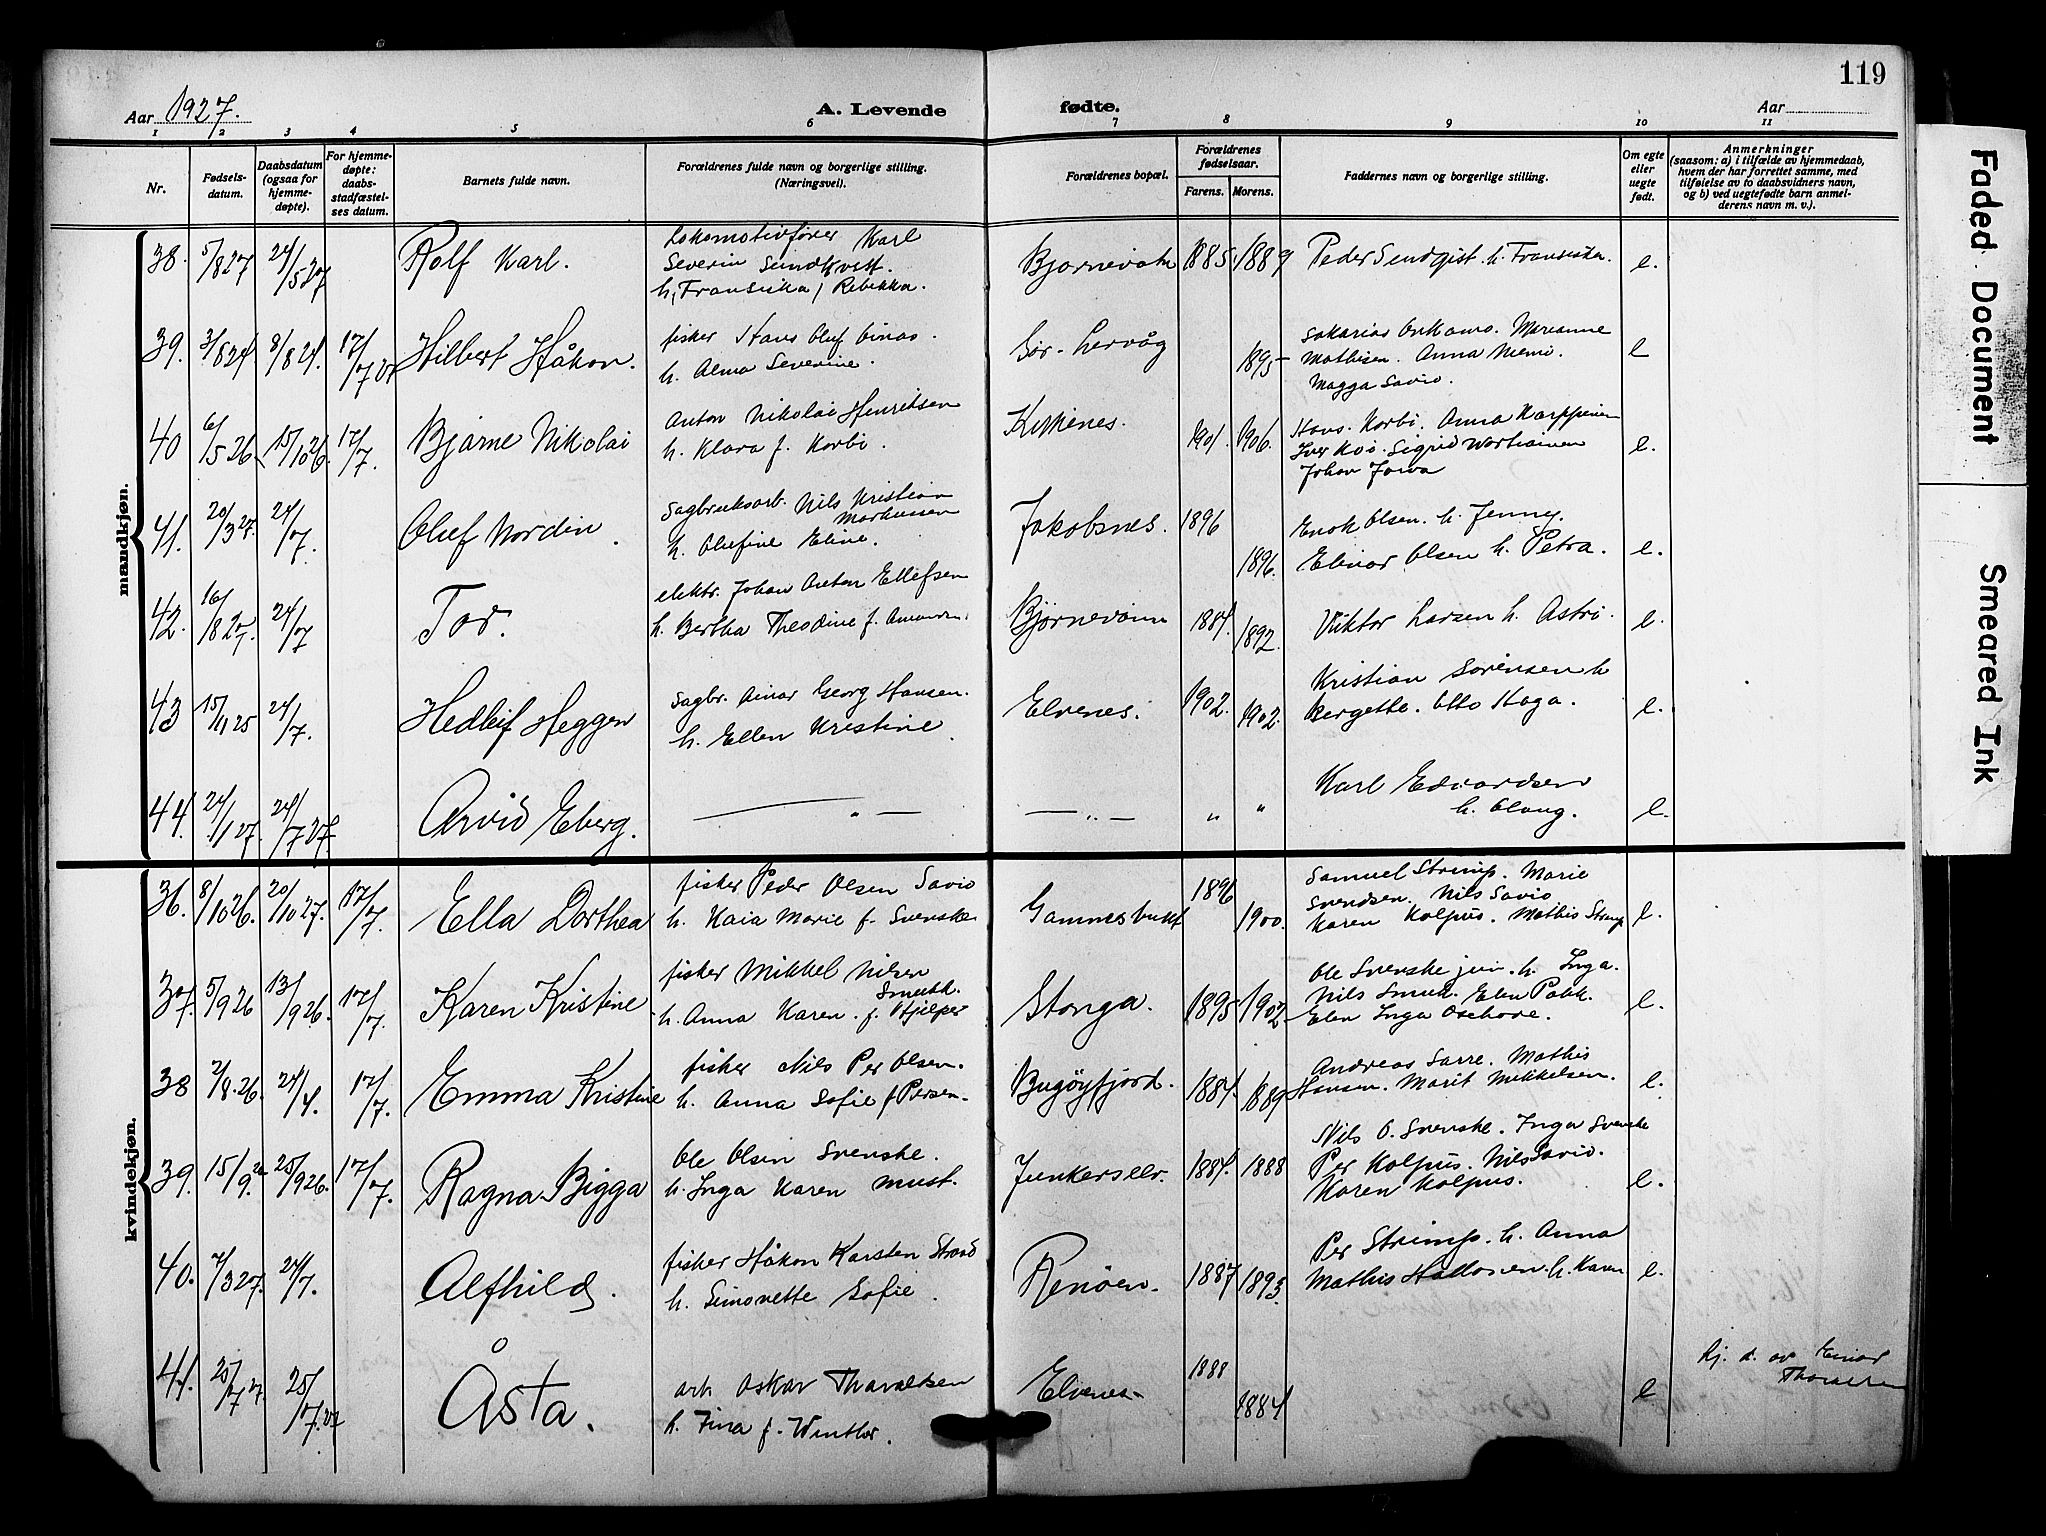 119
Aar 1927.
A. Levende fødte.
Aar
1 2 3 4 5 6 7 8 9 10 11
Nr.
Fødsels-
datum.
Daabsdatum
(ogsaa for
hjemme-
døpte).
For hjemme-
døpte:
daabs-
stadfæstel-
ses datum.
Barnets fulde navn.
Forældrenes fulde navn og borgerlige stilling.
(Næringsvei).
Forældrenes bopæl.
Forældrenes
fødselsaar.
Farens. Morens.
Faddernes navn og borgerlige stilling.
Om egte
eller
uegte
født.
Anmerkninger
(saasom: a) i tilfælde av hjemmedaab,
hvem der har forrettet samme, med
tilføielse av to daabsvidners navn,
og b) ved uegtefødte barn anmel-
derens navn m. v.).
mandkjøn.
38. 5/8 27 24/5 27 Rolf Karl.
Lokomotivfører Karl
Severin Sundkvist
h. Fransiska Rebekka.
Bjørnevatn 1885. 1889 Peder Sundqist. h. Fransiska. e.
39. 3/8 24 8/8 24. 17/7 27 Hilbert Håkon.
fisker Hans Oluf
h. Alma Severine.
Sør-Lervåg 1895
Sakarias Marianne
Mathisen. Anna Niemi.
Magga Savio.
e
40 6/5 26 15/10 26. 17/7. Bjarne Nikolai
Anton Nikolai Henriksen
h. Klara f. Korbi.
Kirkenes. 1901. 1906.
Hans Korbi. Anna Karppinen
Iver Koi. Sigrid
Johan
e.
41. 20/3 27. 24/7. Oluf Nordin.
Sagbruksarb. Nils Kristian
Markussen
h. Olufine Eline.
Jakobsnes. 1896 1896.
Enok Olsen. h. Jenny.
Elinar Olsen h. Petra. e.
42. 16/8 27. 24/7 Tor.
elektr. Johan Anton Ellefsen
h. Bertha Theodine f.
1884. 1892. Viktor Larsen h. Astri. e.
43 15/11 25 24/7. Hedleif Heggen
Sagbr. Ainar Georg Hansen.
h. Ellen Kristine.
Elvenes. 1902. 1902.
Kristian Sørensen h
Bergette. Otto Haga. e.
44. 24/1 27. 24/7 27 Arvid Eberg.
— " — — " — " "
Karl Edvardsen
h. Olaug. e.
kvindekjøn.
36. 8/10 26. 20/10 27. 17/7. Ella Dorthea
fisker Peder Olsen Savio
h. Kaia Marie f. Svenske
1896 1900.
Samuel Strimp. Marie
Svendsen. Nils Savio
Karen Kolpus. Mathis e.
37. 5/9 26 13/9 26. 17/7. Karen Kristine
fisker Mikkel Nilsen
Smuk.
h. Anna Karen. f. Hjelper
Stonga. 1895 1902
Ole Svenske jun. h. Inga.
Nils Smuk. Elen
Elen Inga e.
38 2/8. 26. 24/4. 17/7. Emma Kristine
fisker Nils Per Olsen.
h. Anna Sofie f Persen.
Bugøyfjord. 1884. 1889
Andreas Sarre. Mathis
Hansen. Marit Mikkelsen. e.
39. 15/9. 26 25/9 26. 17/7. Ragna Bigga
Ole Olsen Svenske.
h. Inga Karen Must.
Junkerselv. 1884. 1888
Nils O. Svenske. Inga Svenske
Per Kolpus. Nils Savio.
Karen Kolpus. e.
40. 7/3 27. 24/7. Alfhild.
fisker Håkon Karsten Strand
h. Simonette Sofie.
Renøen. 1887 1893.
Per Strimp. h. Anna
Mathis Hallonen. h. Karen e.
41. 25/7 27. 25/7. 27 Åsta.
arb Oskar Thoraldsen
h. Fina f. Winther.
Elvenes 1888 1884 e
Hj. d. av Einar
Faded Document
Smeared Ink